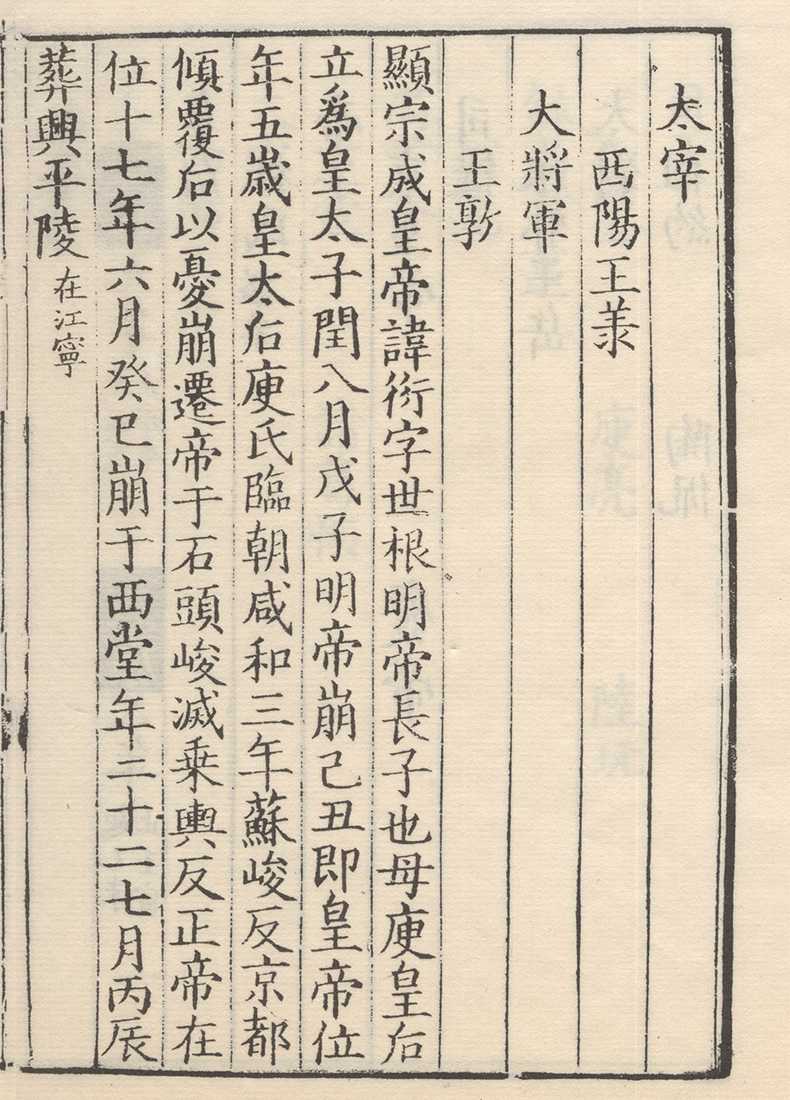 太宰
西陽王羕
大將軍
王敦
顯宗成皇帝諱衍字世根明帝長子也母庾皇后
立爲皇太子閏八月戊子明帝崩己丑即皇帝位
年五歲皇太后庾氏臨朝咸和三年蘇峻反京都
傾覆后以憂崩遷帝于石頭峻滅乘輿反正帝在
位十七年六月癸巳崩于西堂年二十二七月丙辰
葬興平陵在江寧